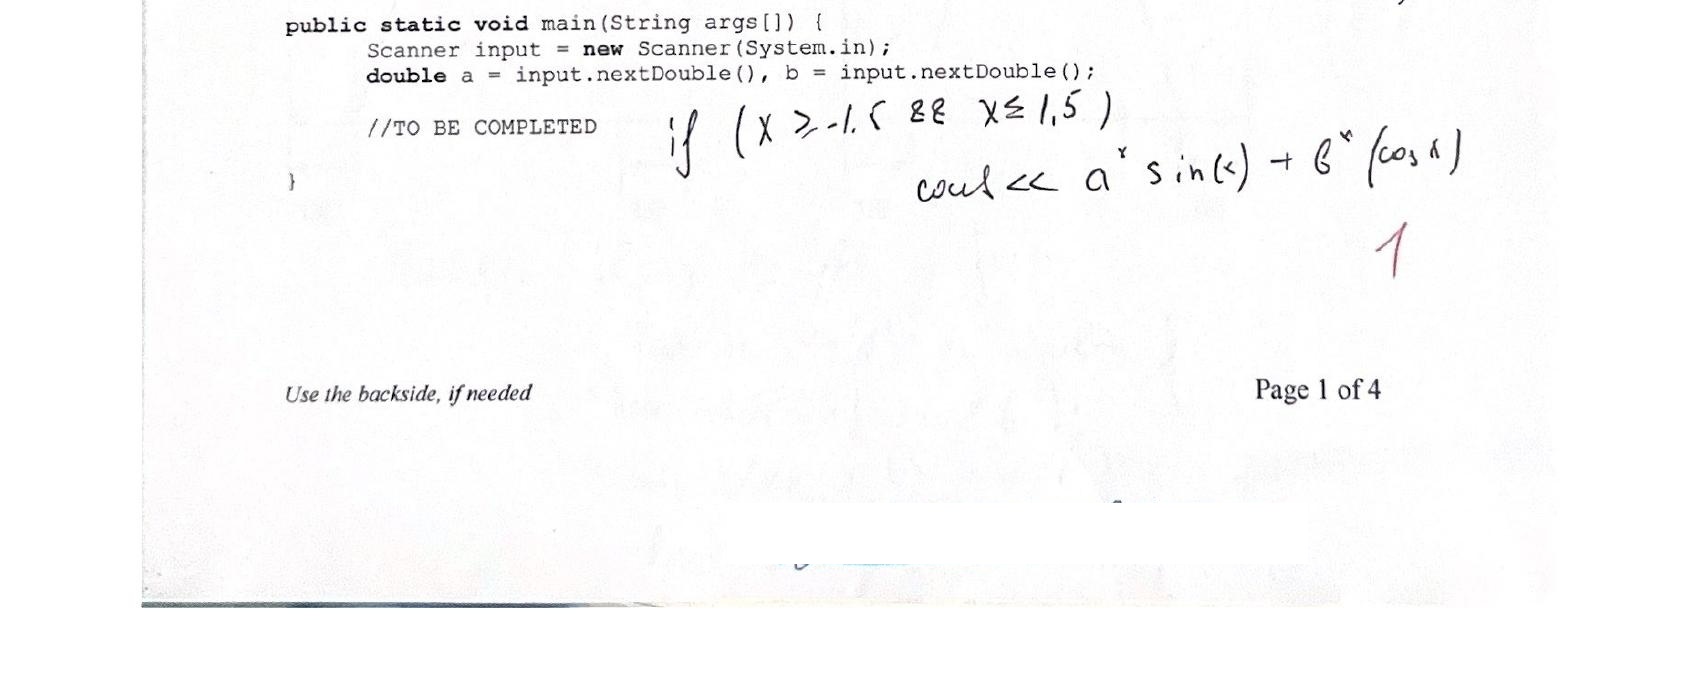 public static void main(String args[]) {
Scanner input = new Scanner(System.in);
double a = input.nextDouble(), b = input.nextDouble();
//TO BE COMPLETED
if (x ≥ -1.5 && x ≤ 1,5)
cout << a * sin(x) + b * (cos x)
}
1
Use the backside, if needed
Page 1 of 4